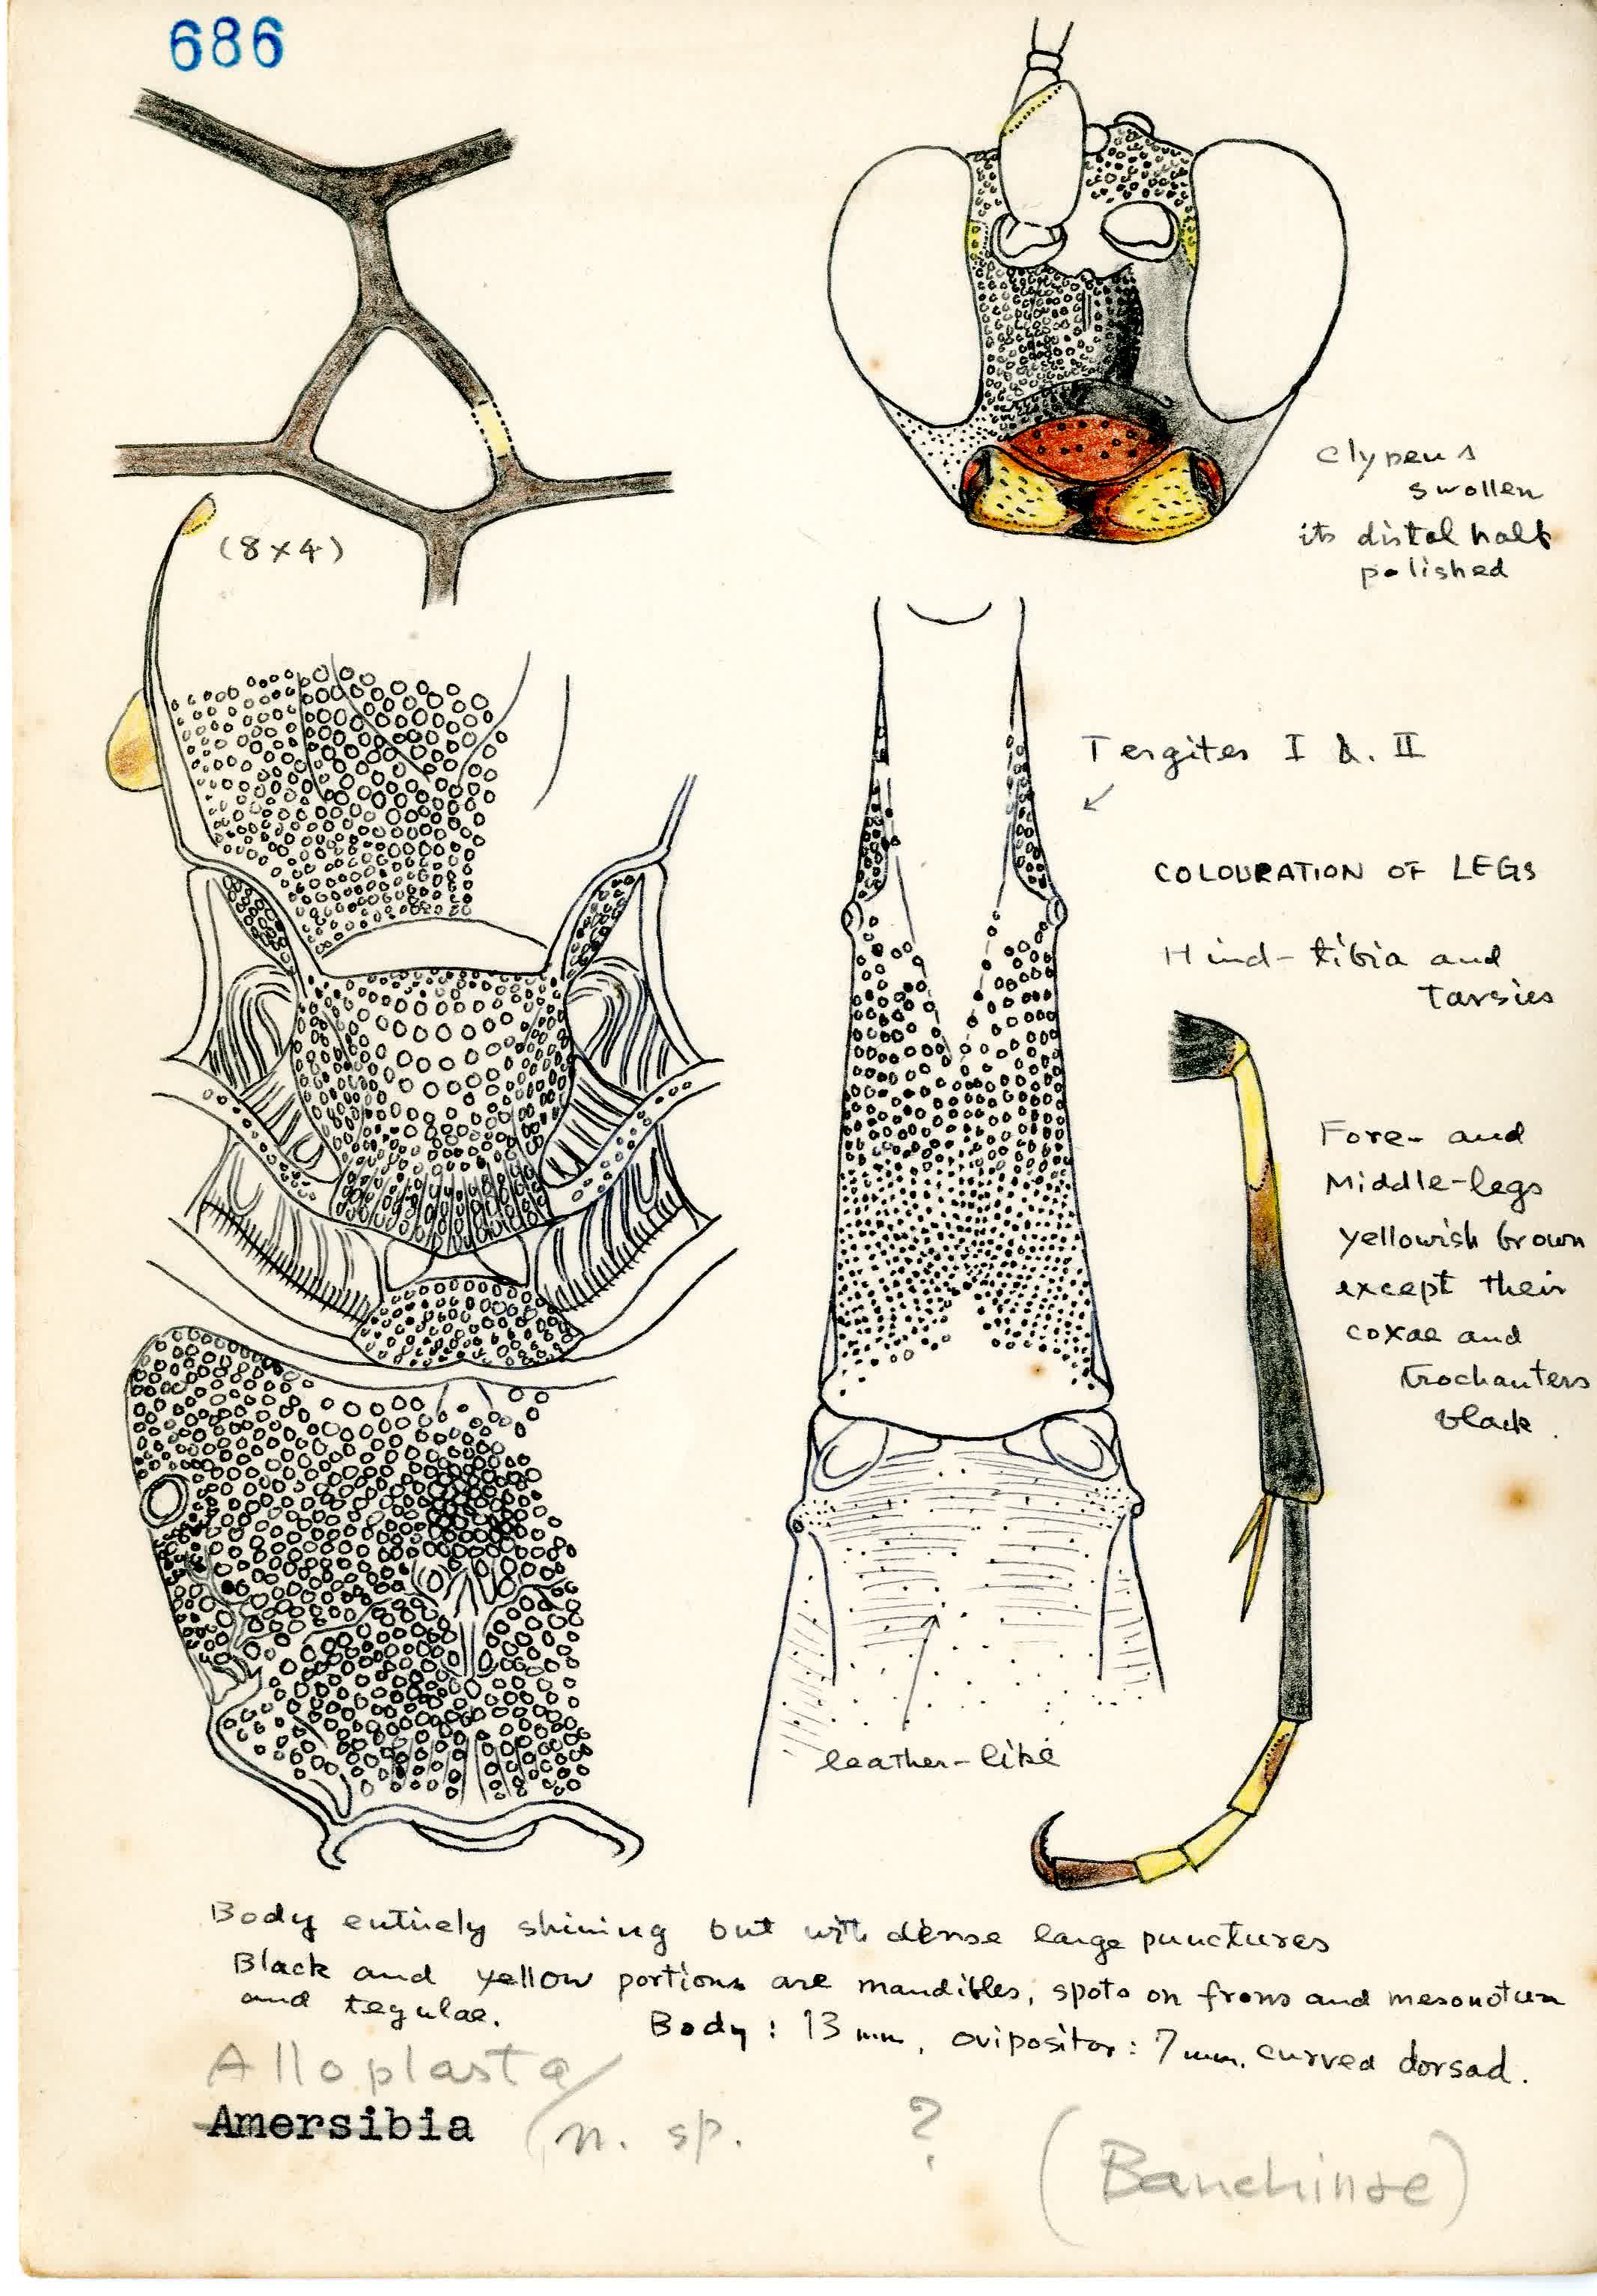 686
(8×4)
Clypeus
swollen
its distal half
polished
Tergites I &. II
COLOURATION OF LEGS
Hind-tibia and
Tarsies
Fore- and
Middle-legs
yellowish brown
except their
coxae and
trochanters
black.
leather-like
Body entirely shining but with dense large punctures
Black and yellow portions are mandibles, spots on frons and mesonotum
and tegulae.
Body : 13 mm, ovipositor : 7 mm, curved dorsad.
Alloplasta
Amersibia n. sp. ?
(Banchinae)